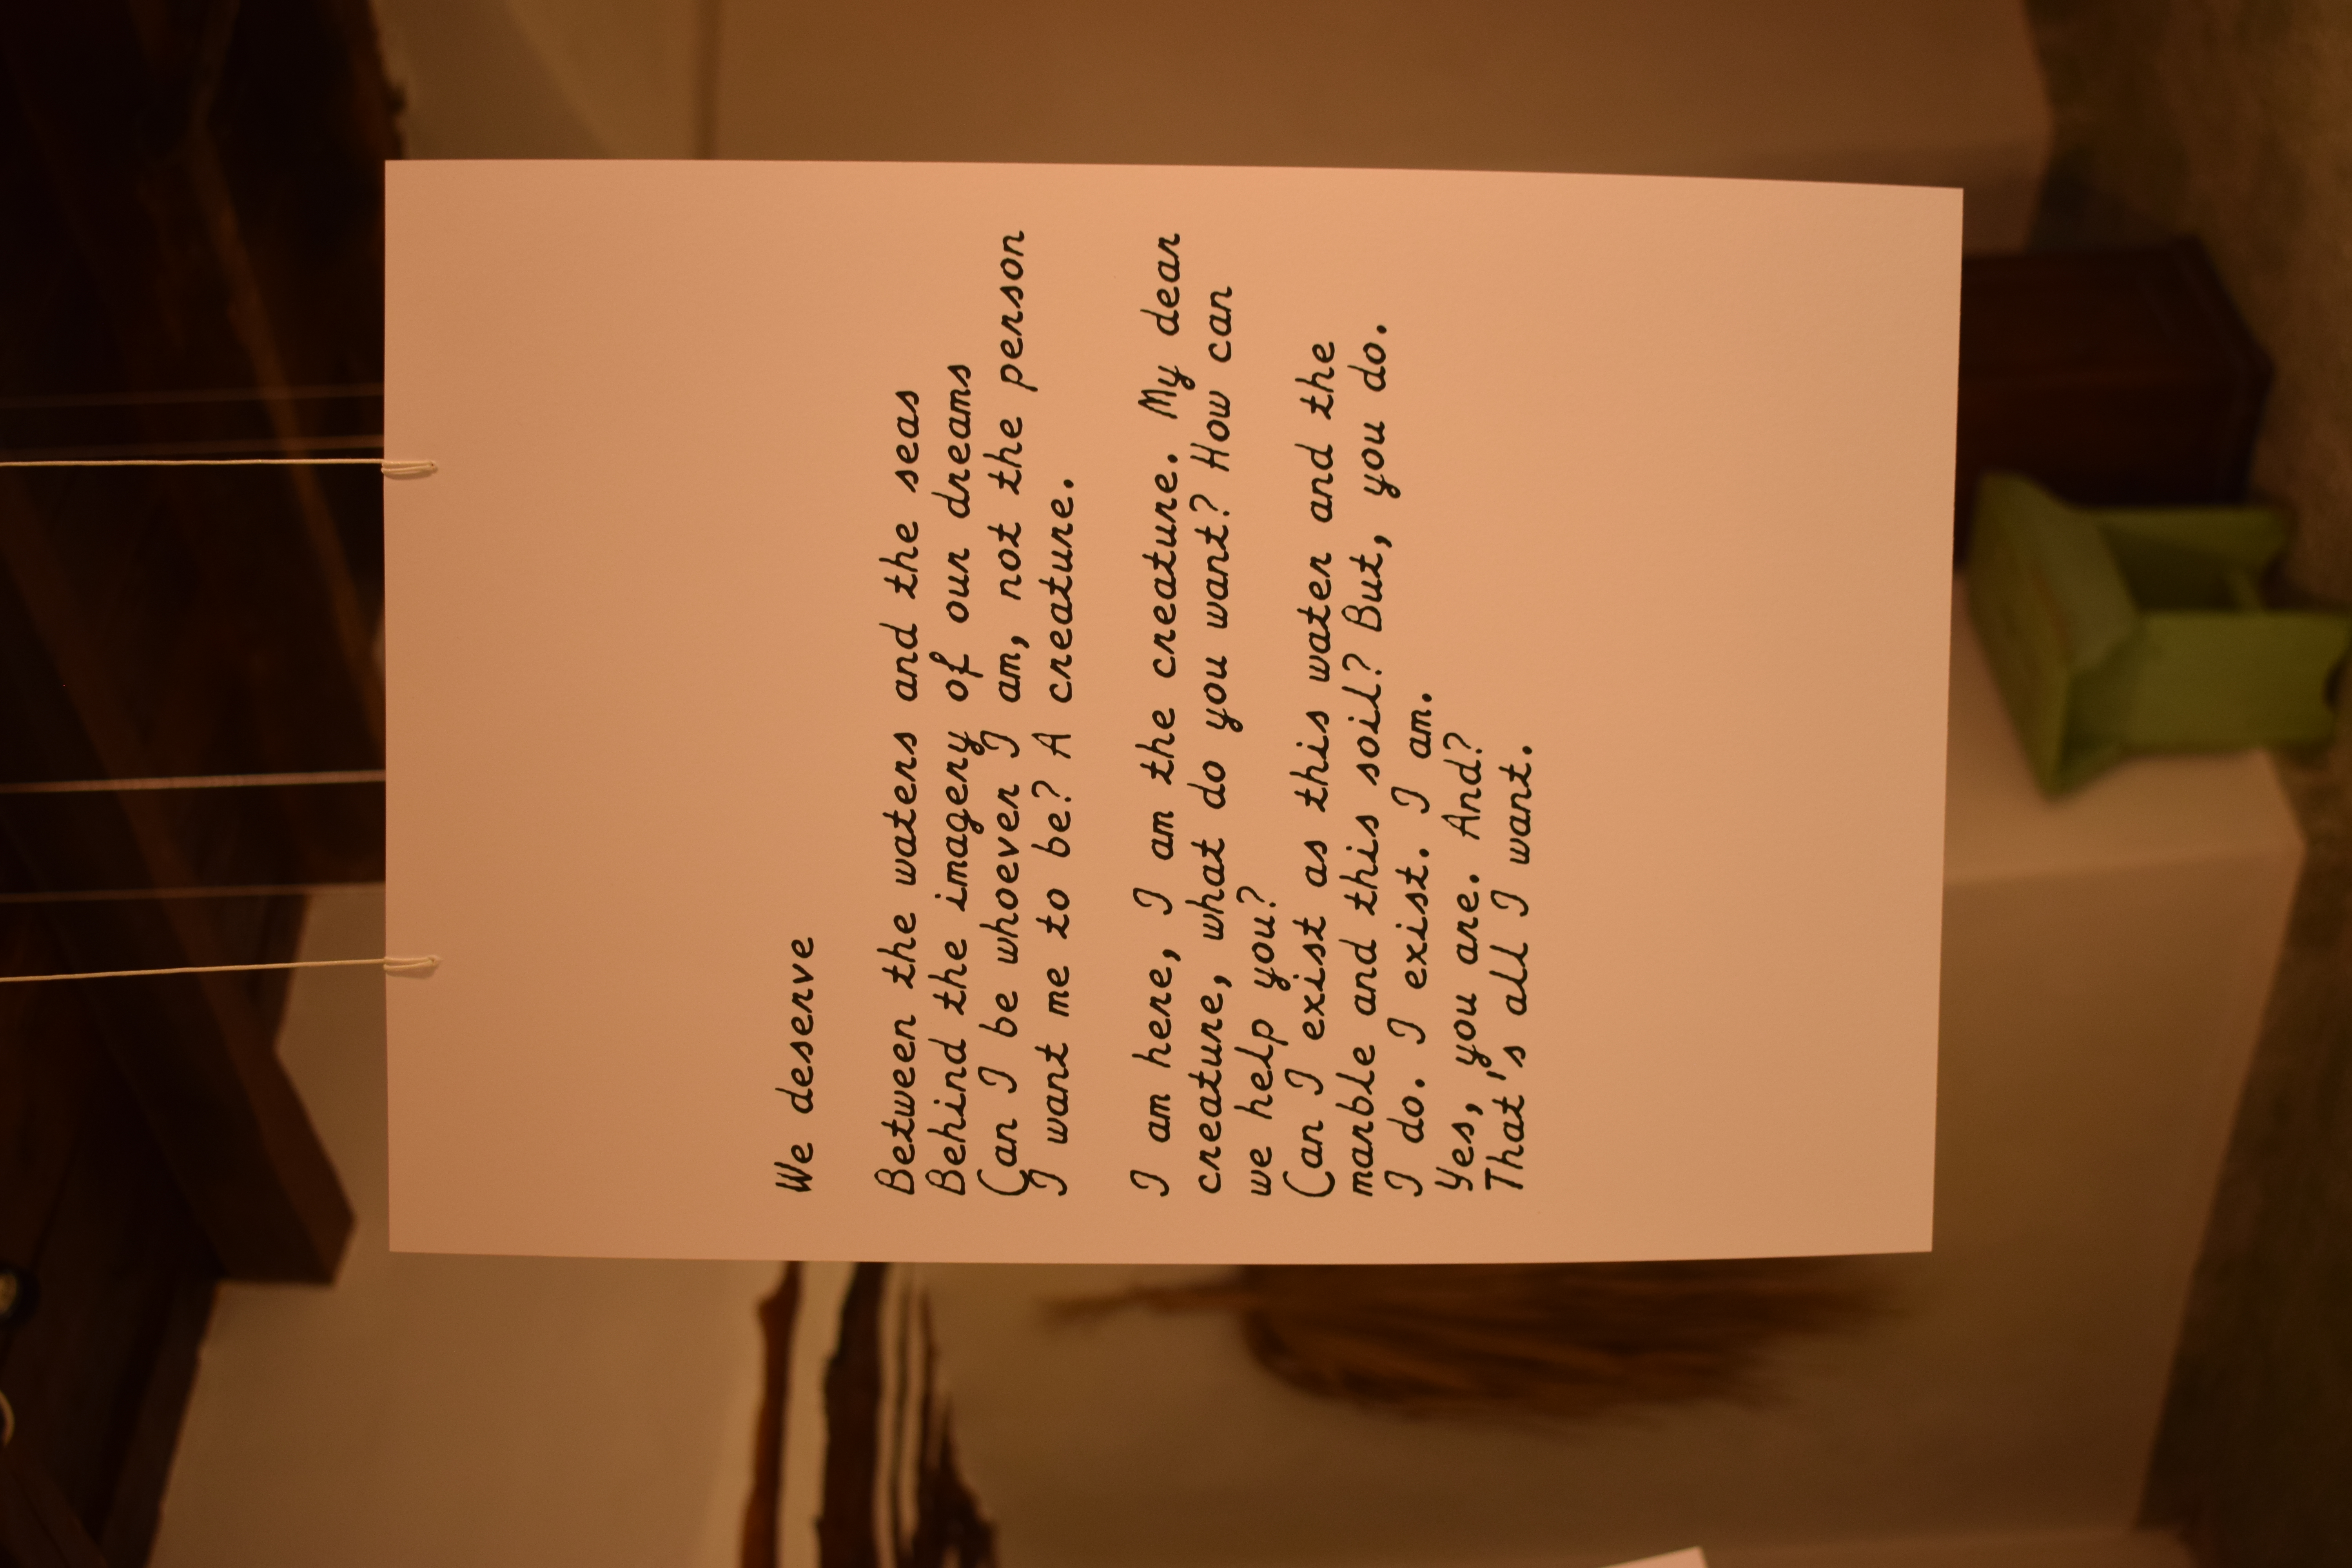 We deserve
Between the waters and the seas
Behind the imagery of our dreams
Can I be whoever I am, not the person
I want me to be? A creature.
I am here, I am the creature. My dear
creature, what do you want? How can
we help you?
Can I exist as this water and the
marble and this soil? But, you do.
I do. I exist. I am.
Yes, you are. And?
That's all I want.